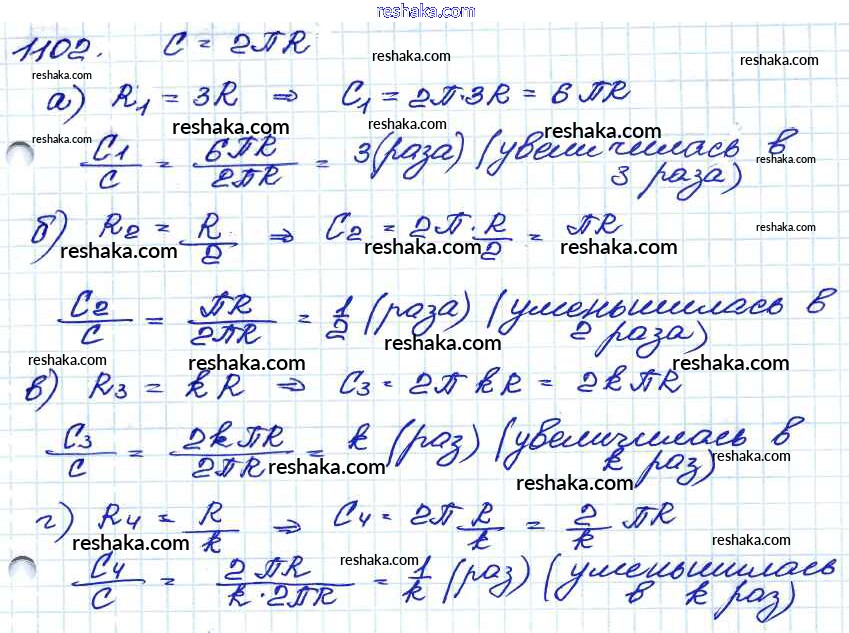 reshaka.com
1102. C = 2ПR
reshaka.com reshaka.com
reshaka.com
а) R₁ = 3R ⇒ C₁ = 2П·3R = 6ПR
reshaka.com reshaka.com reshaka.com reshaka.com
C₁/C = 6ПR/2ПR = 3 (раза) (увеличилась в
reshaka.com
3 раза)
б) R₂ = R/2 ⇒ C₂ = 2П·R/2 = ПR
reshaka.com
reshaka.com reshaka.com reshaka.com
C₂/C = ПR/2ПR = 1/2 (раза) (уменьшилась в
2 раза)
reshaka.com
reshaka.com reshaka.com reshaka.com
в) R₃ = kR ⇒ C₃ = 2П kR = 2kПR
C₃/C = 2kПR/2ПR = k (раз) (увеличилась в
k раз)
reshaka.com reshaka.com
reshaka.com
г) R₄ = R/k ⇒ C₄ = 2П R/k = 2/k ПR
reshaka.com reshaka.com
reshaka.com
C₄/C = 2ПR/k·2ПR = 1/k (раз) (уменьшилась
в k раз)